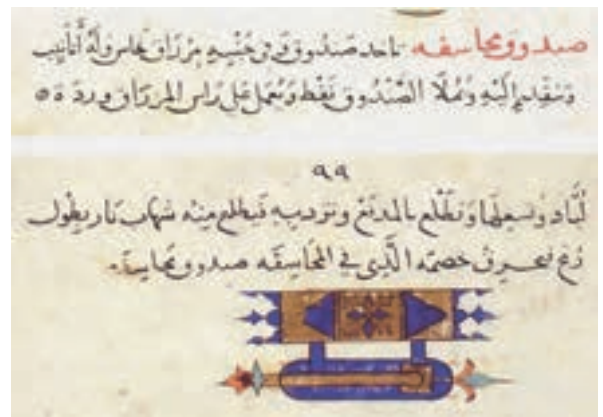 صندوق مخاسفه تاخد صندوق وفي جنبيه مزراق نحاس وله أنابيب
وتنفد إليه وتملا الصندوق نفط وتعمل على راس المزراق وردة
٩٩
لباد وتشعلها وتطلع بالمدفع وتزديه فيطلع منه شهاب نار بطول
رمح فيحرق خصمه الذي في المخاسفه صندوق مخاسفة